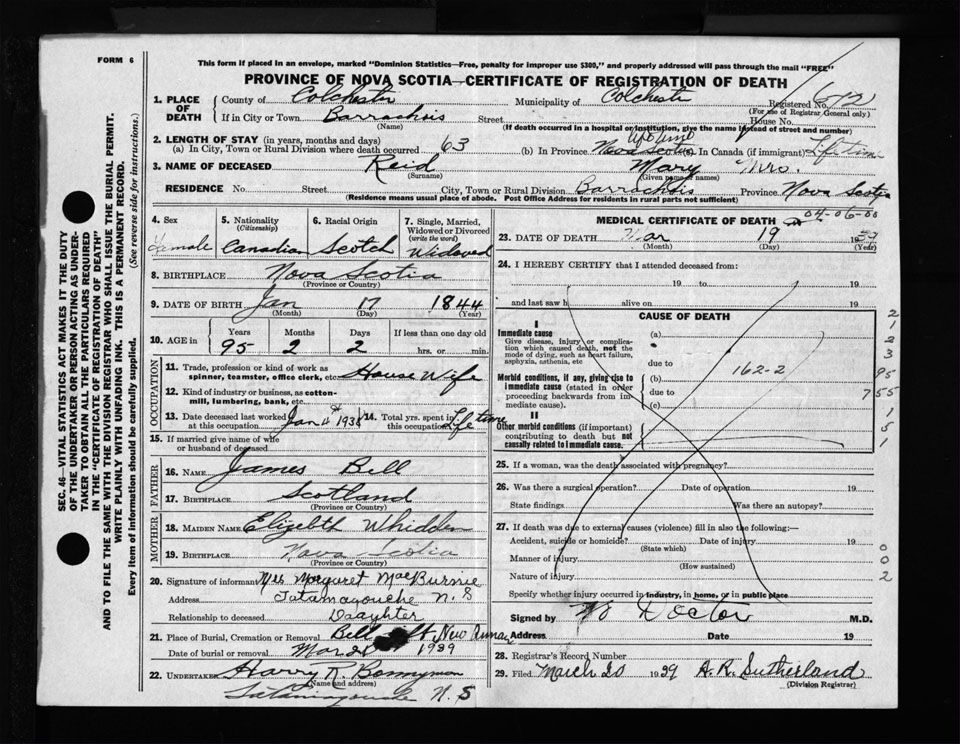 FORM 6
This form if placed in an envelope, marked "Dominion Statistics—Free, penalty for improper use $300," and properly addressed will pass through the mail "FREE"
PROVINCE OF NOVA SCOTIA—CERTIFICATE OF REGISTRATION OF DEATH
1. PLACE OF DEATH County of Colchester Municipality of Colchester Registered No.
(For use of Registrar General only)
If in City or Town Barrachois Street House No.
(Name) (If death occurred in a hospital or institution, give the name instead of street and number)
2. LENGTH OF STAY (in years, months and days)
(a) In City, Town or Rural Division where death occurred 63 (b) In Province Nova Scotia (c) In Canada (if immigrant) Life time
3. NAME OF DECEASED Reid Mary Mrs.
(Surname) (Given name or names)
RESIDENCE No. Street City, Town or Rural Division Barrachois Province Nova Scotia
(Residence means usual place of abode. Post Office Address for residents in rural parts not sufficient)
SEC. 46—VITAL STATISTICS ACT MAKES IT THE DUTY
OF THE UNDERTAKER OR PERSON ACTING AS UNDER-
TAKER TO OBTAIN ALL THE PARTICULARS REQUIRED
IN THE "CERTIFICATE OF REGISTRATION OF DEATH"
AND TO FILE THE SAME WITH THE DIVISION REGISTRAR WHO SHALL ISSUE THE BURIAL PERMIT.
WRITE PLAINLY WITH UNFADING INK. THIS IS A PERMANENT RECORD.
Every item of information should be carefully supplied. (See reverse side for instructions.)
4. Sex 5. Nationality 6. Racial Origin 7. Single, Married,
(Citizenship) Widowed or Divorced
(write the word)
Female Canadian Scotch Widowed
8. BIRTHPLACE Nova Scotia
(Province or Country)
9. DATE OF BIRTH Jan 17 1844
(Month) (Day) (Year)
10. AGE in Years Months Days If less than one day old
95 2 2 hrs. or min.
OCCUPATION
11. Trade, profession or kind of work as
spinner, teamster, office clerk, etc. House Wife
12. Kind of industry or business, as cotton-
mill, lumbering, bank, etc.
13. Date deceased last worked at this occupation Jan 4th 1938 14. Total yrs. spent in this occupation Life time
15. If married give name of wife
or husband of deceased
FATHER
16. NAME James Bell
17. BIRTHPLACE Scotland
(Province or Country)
MOTHER
18. MAIDEN NAME Elizabeth Whidden
19. BIRTHPLACE Nova Scotia
(Province or Country)
20. Signature of informant Mrs Margaret MacBurnie
Address Tatamagouche N.S
Relationship to deceased Daughter
21. Place of Burial, Cremation or Removal Bell New Annan
Date of burial or removal Mar 1939
22. UNDERTAKER Harry R. Bonnyman
(Name and address)
Tatamagouche N.S
MEDICAL CERTIFICATE OF DEATH
04-06-00
23. DATE OF DEATH Mar 19 1939
(Month) (Day) (Year)
24. I HEREBY CERTIFY that I attended deceased from:
19 to 19
and last saw h alive on 19
CAUSE OF DEATH
I
Immediate cause
Give disease, injury or complica-
tion which caused death, not the
mode of dying, such as heart failure,
asphyxia, asthenia, etc
(a)
due to
Morbid conditions, if any, giving rise to
immediate cause (stated in order
proceeding backwards from im-
mediate cause).
(b) 162-2
due to
(c)
II
Other morbid conditions (if important)
contributing to death but not
causally related to immediate cause.
2
1
2
3
95
7 55
1
5
1
25. If a woman, was the death associated with pregnancy?
26. Was there a surgical operation? Date of operation 19
State findings Was there an autopsy?
27. If death was due to external causes (violence) fill in also the following:—
Accident, suicide or homicide? Date of injury 19
(State which)
Manner of injury
(How sustained)
Nature of injury
0
0
2
Specify whether injury occurred in industry, in home, or in public place
Signed by No Doctor M.D.
Address Date 19
28. Registrar's Record Number
29. Filed March 20 1939 A.R. Sutherland
(Division Registrar)